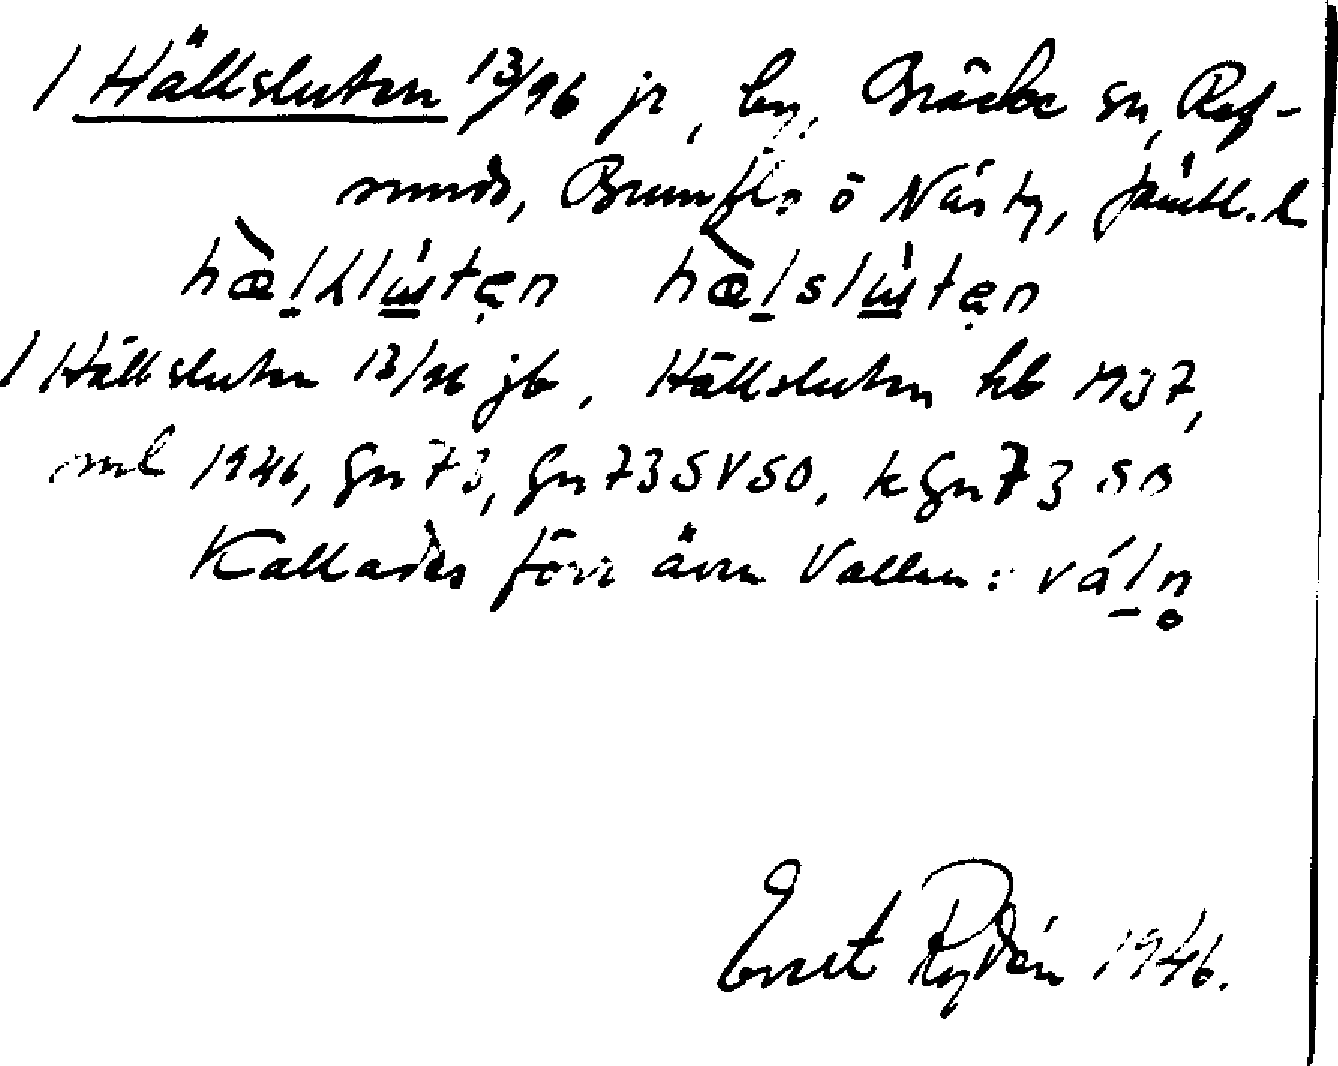 / Hällsluten 13/96 jr, by, Bräcke sn, Ref-
sunds, Brunflo o Näs tg, Jämtl. l
hæ̀lklústęn hæ̀lslústęn
/ Hällsluten 13/96 jb, Hällsluten kb 1937,
ml 1946, Gn 73, Gn 73 SVSO, k Gn 73 SO
Kallades förr även Vallen: váln̥
Ernst Rydén 1946.